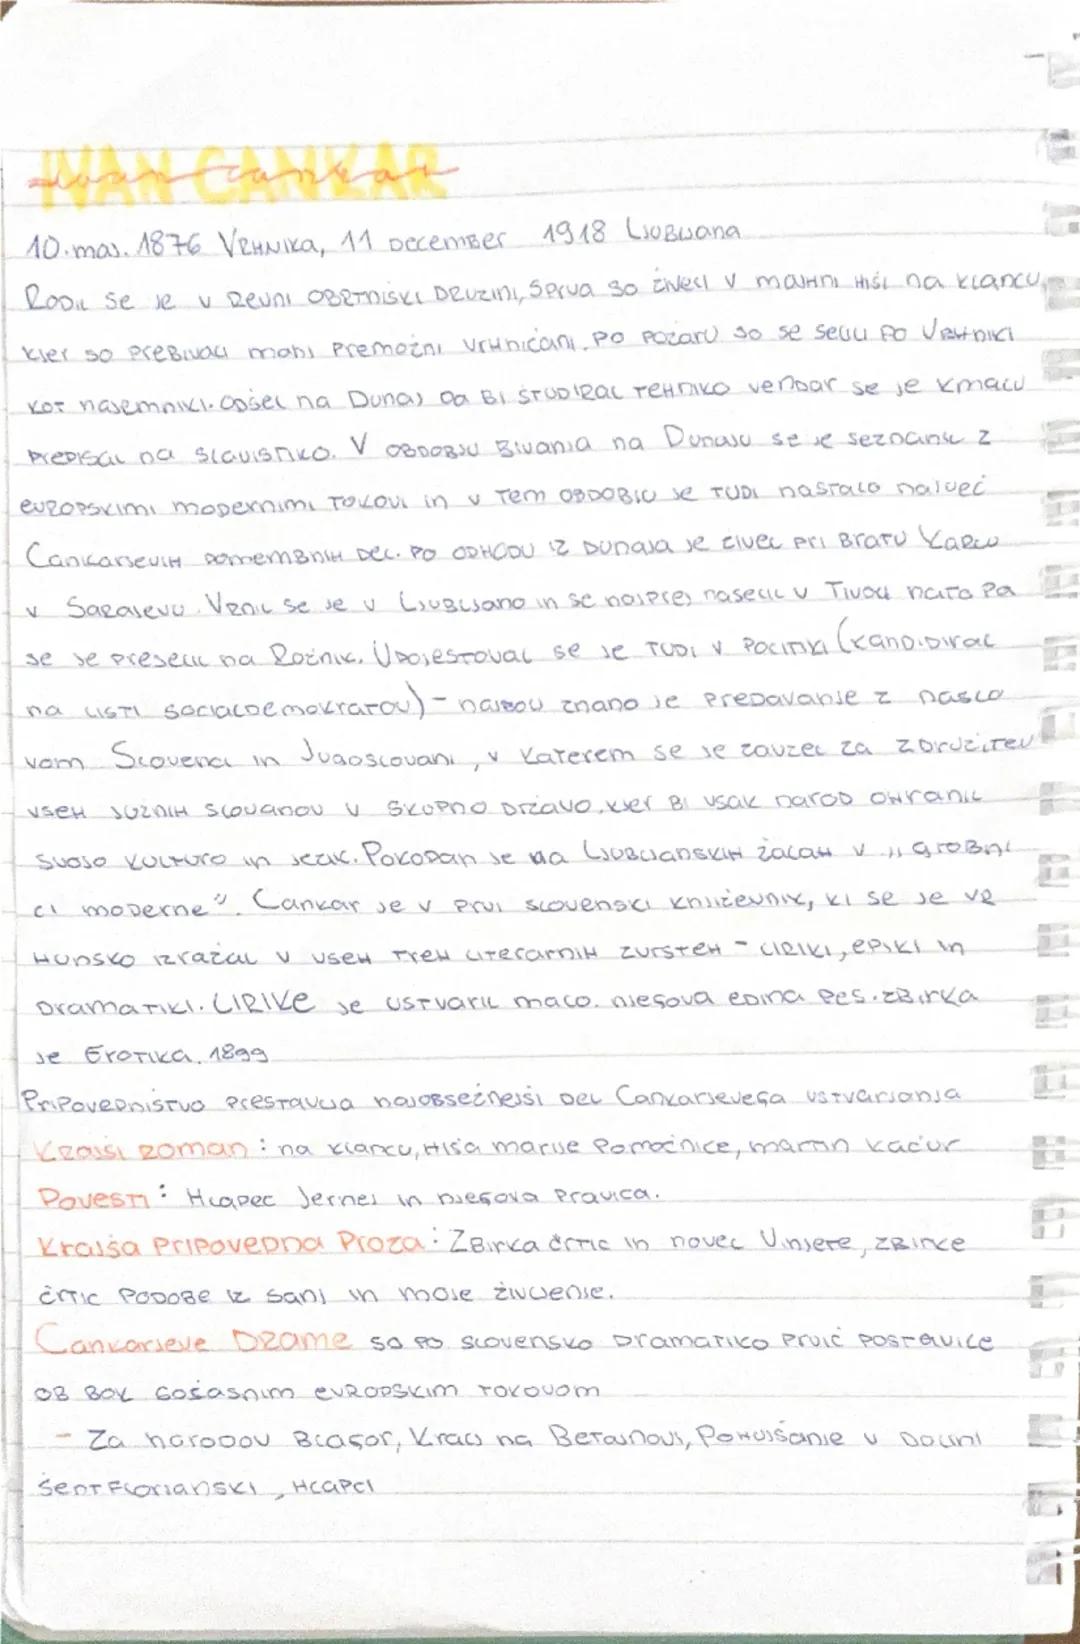 IVAN CANKAR
Ivan Cankar
10. maj. 1876 VRHNIKA, 11 DECEMBER 1918 LJUBLJANA
RODIL SE JE V REVNI OBRTNIŠKI DRUZINI, SPRVA SO ŽIVELI V MAJHNI HIŠI NA KLANCU,
KJER SO PREBIVALI MANJ PREMOŽNI VRHNIČANI. PO POŽARU SO SE SELILI PO VRHNIKI
KOT NAJEMNIKI. ODŠEL NA DUNAJ DA BI ŠTUDIRAL TEHNIKO VENDAR SE JE KMALU
PREPISAL NA SLAVISTIKO. V OBDOBJU BIVANJA NA DUNAJU SE JE SEZNANIL Z
EVROPSKIMI MODERNIMI TOKOVI IN V TEM OBDOBJU JE TUDI NASTALO NAJVEČ
CANKARJEVIH POMEMBNIH DEL. PO ODHODU IZ DUNAJA JE ŽIVEL PRI BRATU KARLU
V SARAJEVU. VRNIL SE JE V LJUBLJANO IN SE NAJPREJ NASELIL V TIVOLI NATO PA
SE JE PRESELIL NA ROŽNIK. UDEJESTOVAL SE JE TUDI V POLITIKI (KANDIDIRAL
NA LISTI SOCIALDEMOKRATOV) - NAJBOLJ ZNANO JE PREDAVANJE Z NASLO
VOM SLOVENCI IN JUGOSLOVANI, V KATEREM SE JE ZAVZEL ZA ZDRUŽITEV
VSEH JUŽNIH SLOVANOV V SKUPNO DRŽAVO, KJER BI VSAK NAROD OHRANIL
SVOJO KULTURO IN JEZIK. POKOPAN JE NA LJUBLJANSKIH ŽALAH V „GROBNI
CI MODERNE". CANKAR JE V PRVI SLOVENSKI KNJIŽEVNIK, KI SE JE VR
HUNSKO IZRAŽAL V VSEH TREH LITERARNIH ZVRSTEH - LIRIKI, EPIKI IN
DRAMATIKI. LIRIKE JE USTVARIL MALO. NJEGOVA EDINA PES. ZBIRKA
JE EROTIKA. 1899
PRIPOVEDNIŠTVO PRESTAVLJA NAJOBSEŽNEJŠI DEL CANKARJEVEGA USTVARJANJA
KRAJŠI ROMAN: NA KLANCU, HIŠA MARIJE POMOČNICE, MARTIN KAČUR
POVESTI: HLAPEC JERNEJ IN NJEGOVA PRAVICA.
KRAJŠA PRIPOVEDNA PROZA: ZBIRKA ČRTIC IN NOVEL VINJETE, ZBIRKE
ČRTIC PODOBE IZ SANJ IN MOJE ŽIVLJENJE.
CANKARJEVE DRAME SO PO SLOVENSKO DRAMATIKO PRVIČ POSTAVILE
OB BOK SOČASNIM EVROPSKIM TOKOVOM
- ZA NARODOV BLAGOR, KRALJ NA BETAJNOVI, POHUJŠANJE V DOLINI
ŠENTFLORIANSKI, HLAPCI